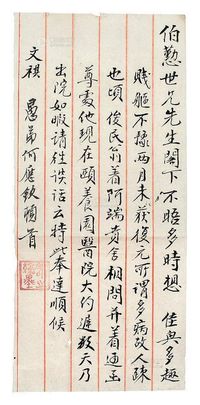 伯懃世兄先生閣下不晤多時想 佳興多趣
賤軀不攘兩月未获復元可謂多病故人疎
也頃俊民翁着阿端貴舍相問并着通函
尊處他現在頤養園醫院大约遲数天乃
出院如暇请往谈话云特此奉達順候
文祺 愚弟何應欽頓首